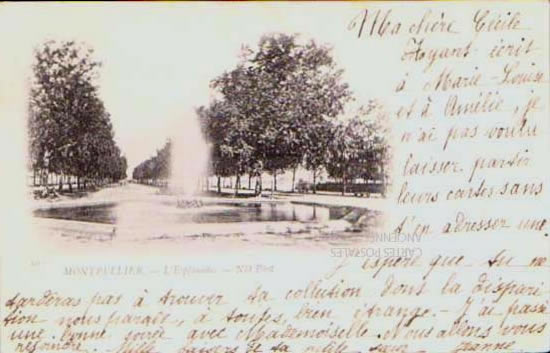 Ma chère Cécile
Ayant écrit
à Marie-Louise
et à Amélie, je
n'ai pas voulu
laisser partir
leurs cartes sans
t'en adresser une.
J'espère que tu ne
tarderas pas à trouver ta collection dont la dispari
tion nous paraît, à toutes, bien étrange. - J'ai passé
une bonne soirée avec Mademoiselle. Nous allons vous
rejoindre. Mille baisers de ta petite sœur
MONTPELLIER. — L'Esplanade. — ND Phot
CARTES POSTALES
ANCIENNES